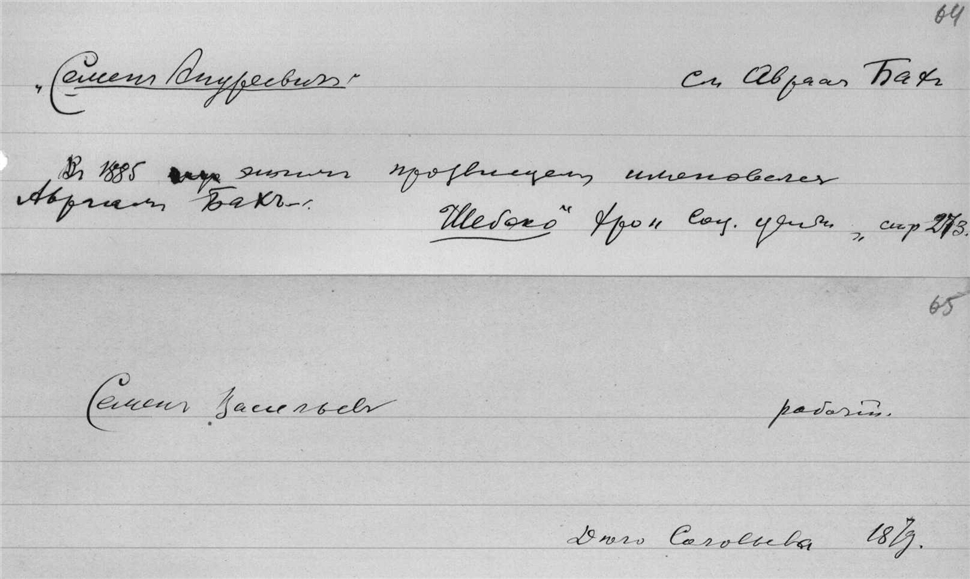 64
„Семенъ Андреевичъ" см Авраам Бахъ
Въ 1885 этимъ прозвищемъ именовался
Авраамъ Бахъ.
Шебеко" Хрон Соц. „ стр 273.
65
Семенъ Васильевъ рабочій.
Дѣло Соловьева 1879.